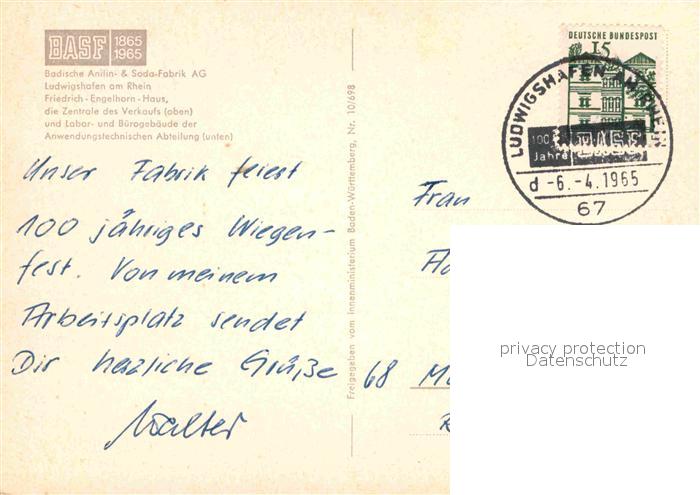 BASF 1865
1965
Badische Anilin- & Soda-Fabrik AG
Ludwigshafen am Rhein
Friedrich-Engelhorn-Haus,
die Zentrale des Verkaufs (oben)
und Labor- und Bürogebäude der
Anwendungstechnischen Abteilung (unten)
Unser Fabrik feiert
100 jähriges Wiegen-
fest. Von meinem
Arbeitsplatz sendet
Dir herzliche Grüße
Walter
Freigegeben vom Innenministerium Baden-Württemberg, Nr. 10/698
DEUTSCHE BUNDESPOST
15
LUDWIGSHAFEN AM RHEIN
100 Jahre BASF
d -6.-4.1965
67
Frau
68
privacy protection
Datenschutz